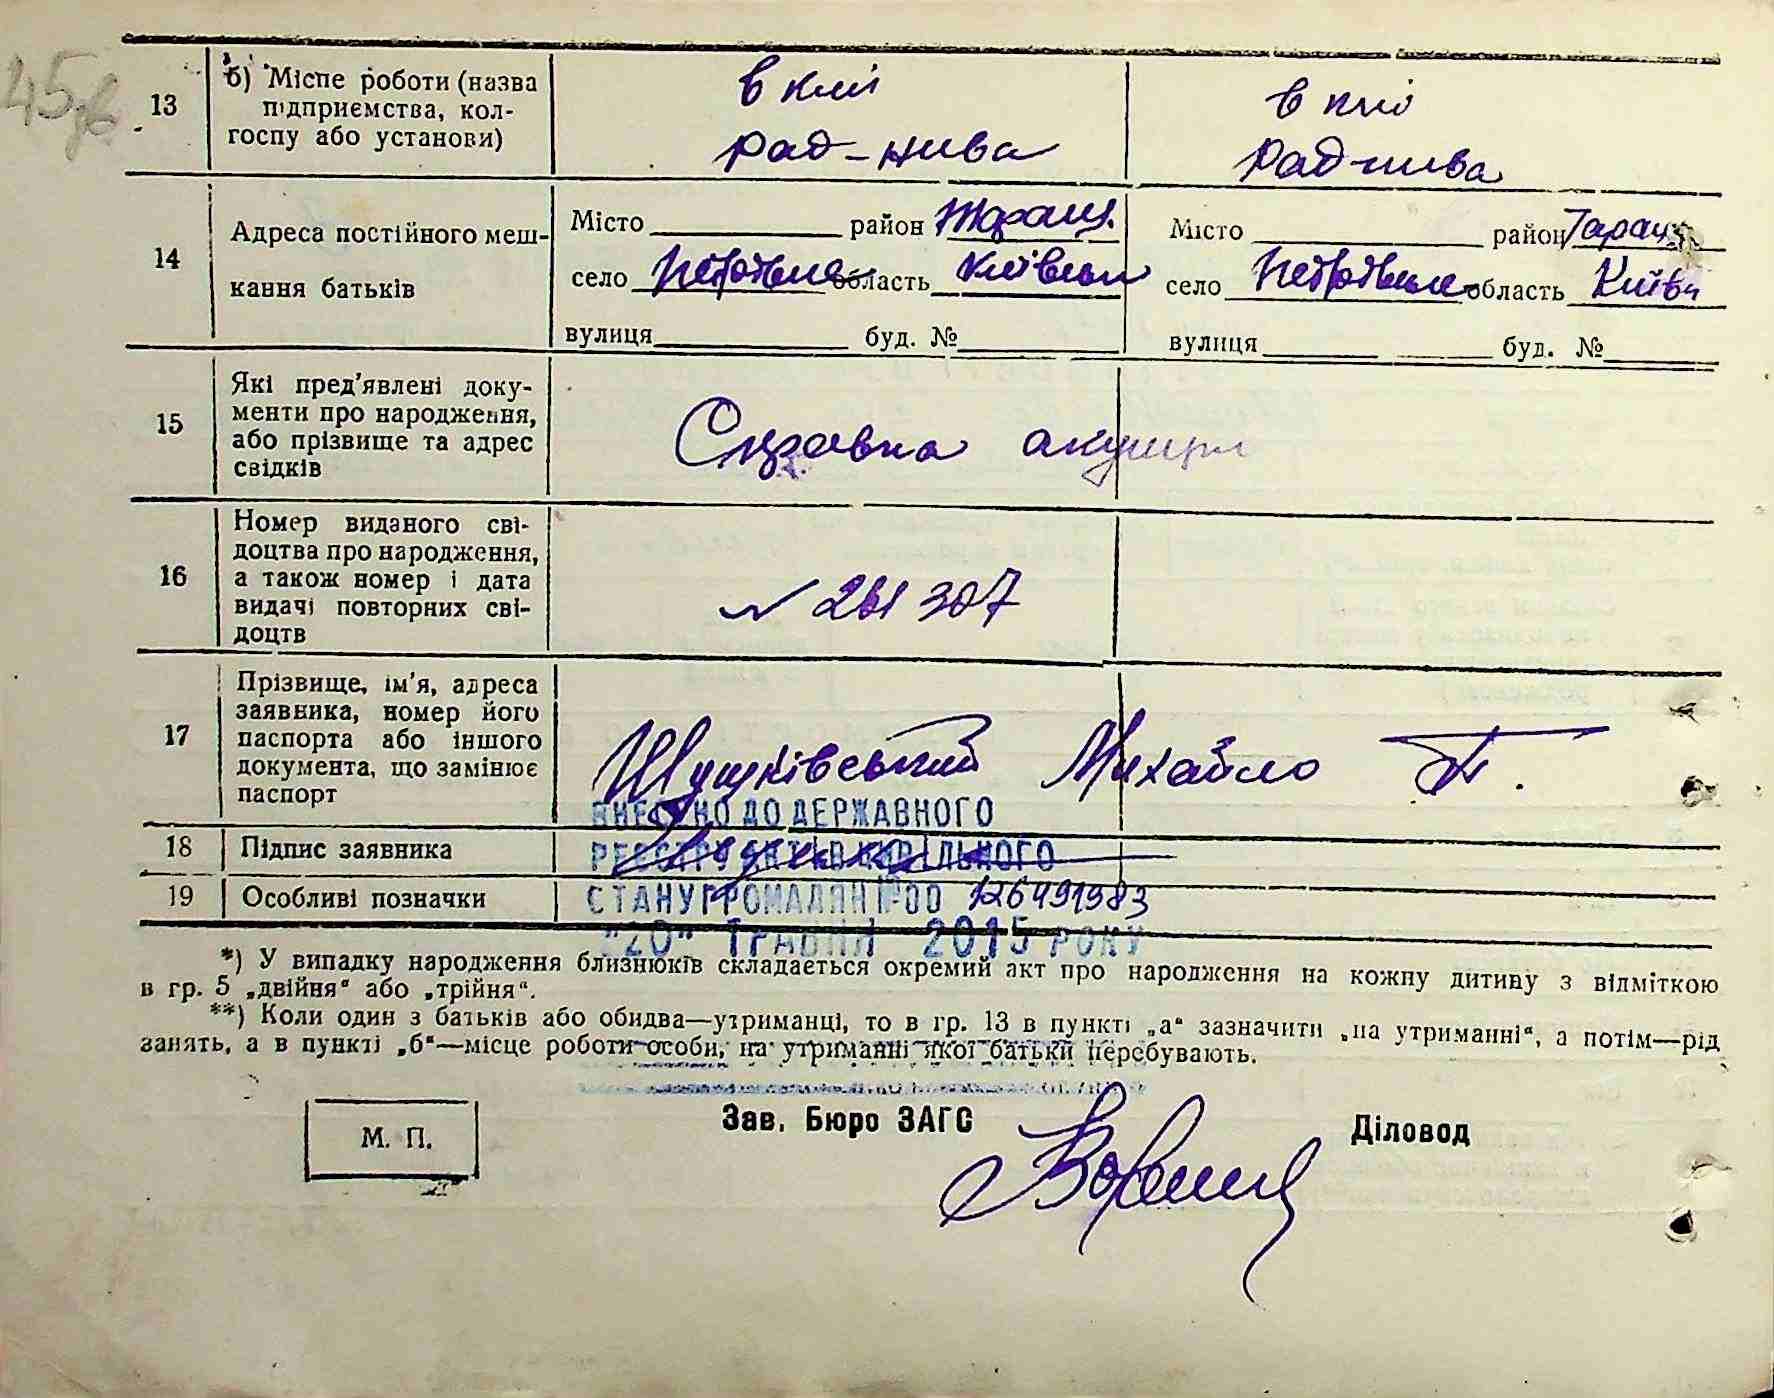 45
13 б) Місце роботи (назва підприємства, колгоспу або установи)
в клі
рад-нива
в клі
Рад-нива
14 Адреса постійного мешкання батьків
Місто район Тращ.
село область Київськ
вулиця буд. №
Місто район Таращ
село область Київ
вулиця буд. №
15 Які пред'явлені документи про народження, або прізвище та адрес свідків
Справка акушера
16 Номер виданого свідоцтва про народження, а також номер і дата видачі повторних свідоцтв
№ 307
17 Прізвище, ім'я, адреса заявника, номер його паспорта або іншого документа, що замінює паспорт
Михайло Т.
ВНЕСЕНО ДО ДЕРЖАВНОГО
18 Підпис заявника
РЕЄСТРУ АКТІВ ЦИВІЛЬНОГО
19 Особливі позначки
СТАНУ ГРОМАДЯН №00 126491983
"20" ТРАВНЯ 2015 РОКУ
*) У випадку народження близнюків складається окремий акт про народження на кожну дитину з відміткою
в гр. 5 „двійня“ або „трійня“.
**) Коли один з батьків або обидва—утриманці, то в гр. 13 в пункті „а“ зазначити „на утриманні“, а потім—рід
занять, а в пункті „б“—місце роботи особи, на утриманні якої батьки перебувають.
М. П.
Зав. Бюро ЗАГС
Діловод